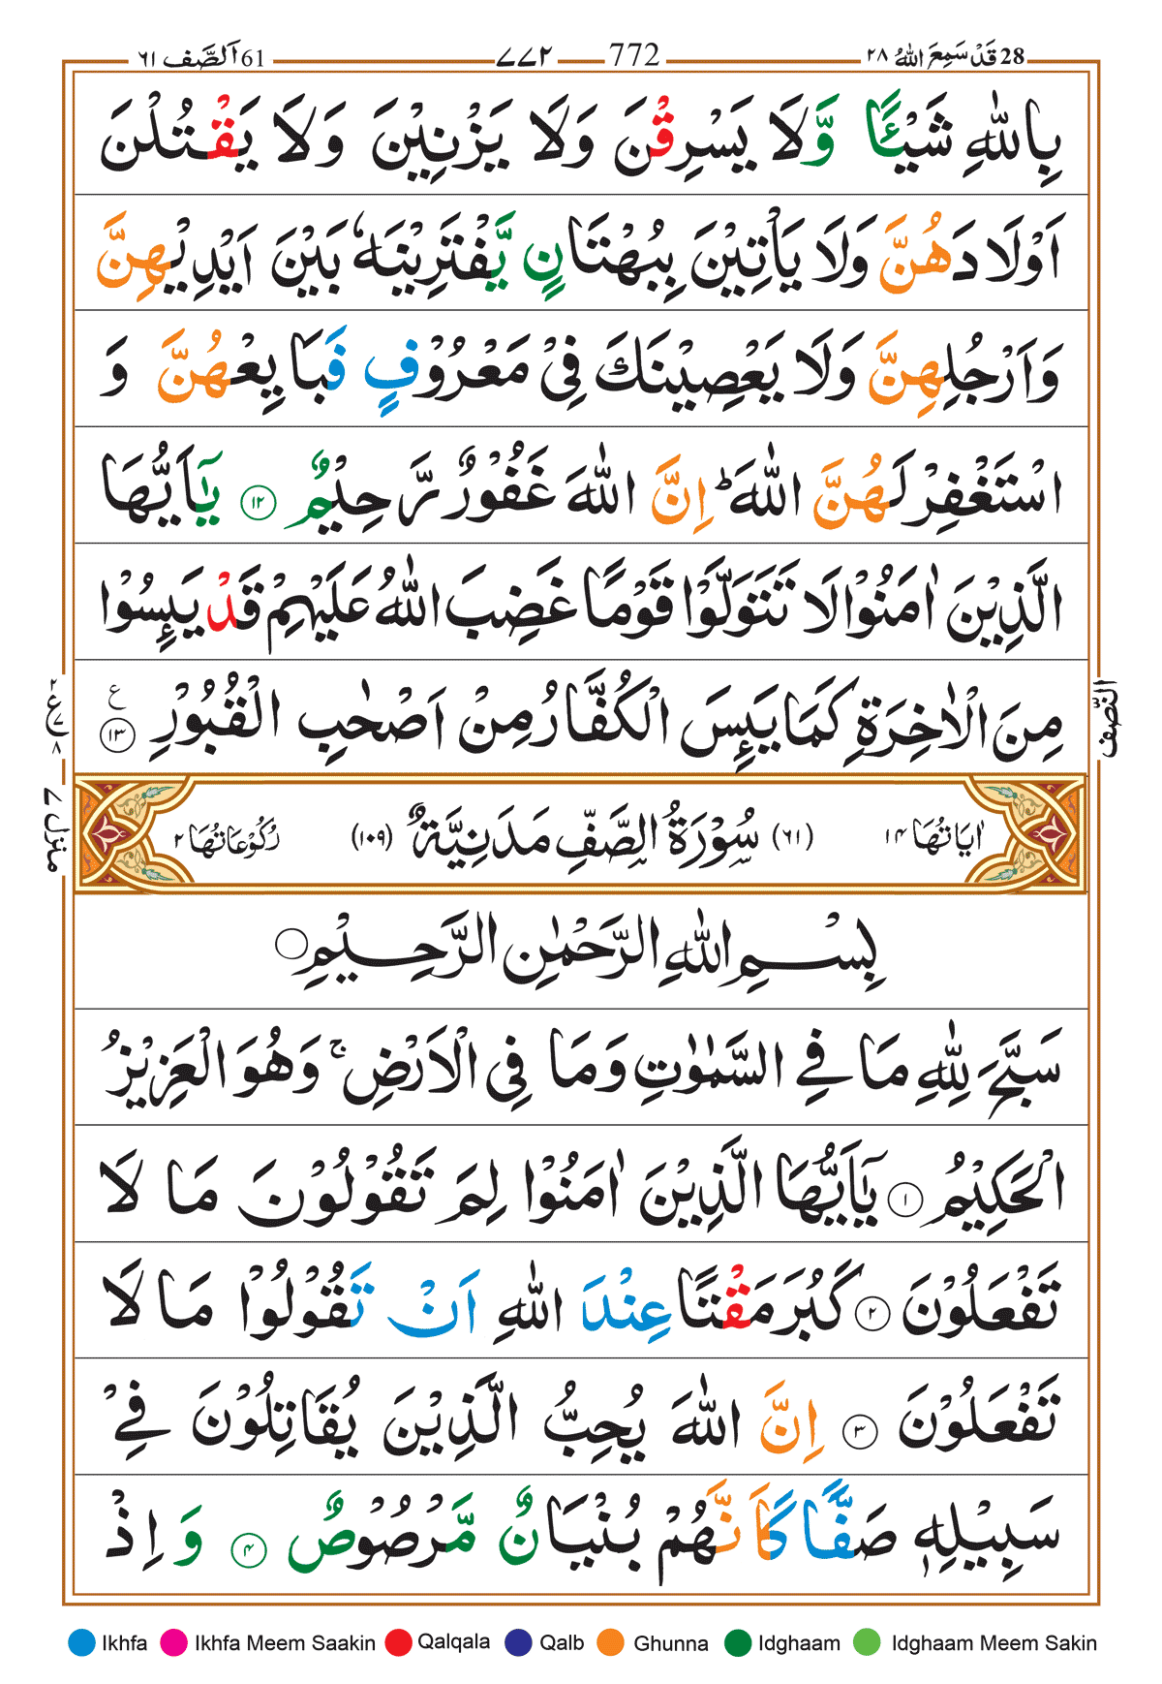 61 اَلصَّف ٦١ ٧٧٢ 772 28 قَدْ سَمِعَ اللّٰهُ ٢٨
بِاللّٰهِ شَيْـًٔا وَّلَا يَسْرِقْنَ وَلَا يَزْنِيْنَ وَلَا يَقْتُلْنَ
اَوْلَادَهُنَّ وَلَا يَاْتِيْنَ بِبُهْتَانٍ يَّفْتَرِيْنَهٗ بَيْنَ اَيْدِيْهِنَّ
وَاَرْجُلِهِنَّ وَلَا يَعْصِيْنَكَ فِيْ مَعْرُوْفٍ فَبَايِعْهُنَّ وَ
اسْتَغْفِرْ لَهُنَّ اللّٰهَ ؕ اِنَّ اللّٰهَ غَفُوْرٌ رَّحِيْمٌ ١٢ يٰٓاَيُّهَا
الَّذِيْنَ اٰمَنُوْا لَا تَتَوَلَّوْا قَوْمًا غَضِبَ اللّٰهُ عَلَيْهِمْ قَدْ يَىِٕسُوْا
مِنَ الْاٰخِرَةِ كَمَا يَىِٕسَ الْكُفَّارُ مِنْ اَصْحٰبِ الْقُبُوْرِ ١٣ ع
النّصف
منزل ٧
اٰيَاتُهَا ١٤ (٦١) سُوْرَةُ الصَّفِّ مَدَنِيَّةٌ (١٠٩) رُكُوْعَاتُهَا ٢
بِسْمِ اللّٰهِ الرَّحْمٰنِ الرَّحِيْمِ
سَبَّحَ لِلّٰهِ مَا فِي السَّمٰوٰتِ وَمَا فِي الْاَرْضِ ۚ وَهُوَ الْعَزِيْزُ
الْحَكِيْمُ ١ يٰٓاَيُّهَا الَّذِيْنَ اٰمَنُوْا لِمَ تَقُوْلُوْنَ مَا لَا
تَفْعَلُوْنَ ٢ كَبُرَ مَقْتًا عِنْدَ اللّٰهِ اَنْ تَقُوْلُوْا مَا لَا
تَفْعَلُوْنَ ٣ اِنَّ اللّٰهَ يُحِبُّ الَّذِيْنَ يُقَاتِلُوْنَ فِيْ
سَبِيْلِهٖ صَفًّا كَاَنَّهُمْ بُنْيَانٌ مَّرْصُوْصٌ ٤ وَاِذْ
Ikhfa Ikhfa Meem Saakin Qalqala Qalb Ghunna Idghaam Idghaam Meem Sakin